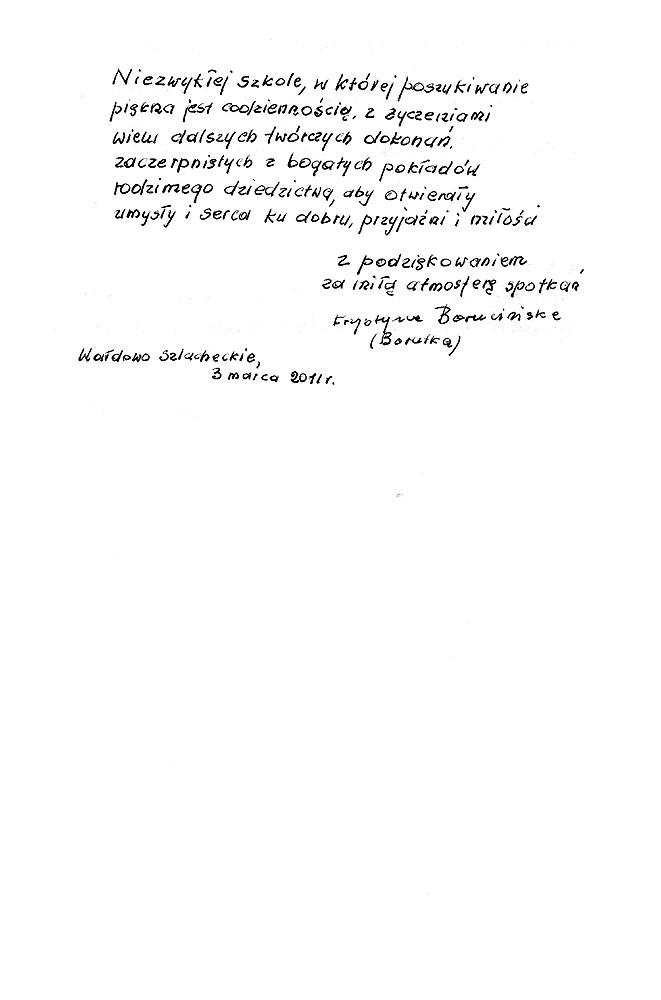 Niezwykłej szkole, w której poszukiwanie
piękna jest codziennością, z życzeniami
wielu dalszych twórczych dokonań,
zaczerpniętych z bogatych pokładów
rodzimego dziedzictwa, aby otwierały
umysły i serca ku dobru, przyjaźni i miłości
z podziękowaniem
za miłą atmosferę spotkań
Krystyna Borucińska
(Borutka)
Wałdowo Szlacheckie,
3 marca 2011 r.